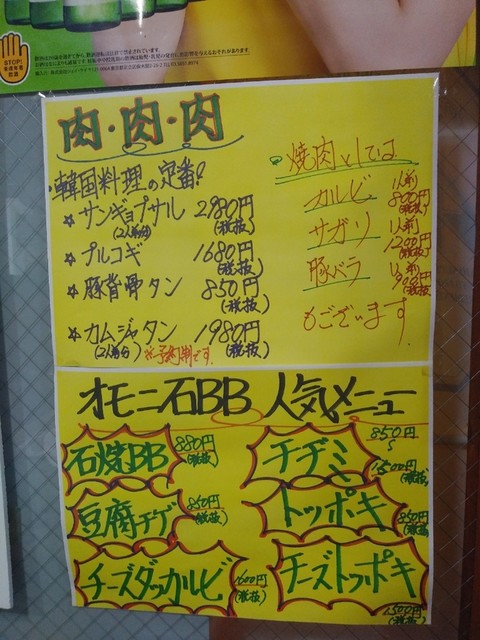 STOP!
肉・肉・肉
・韓国料理の定番!
☆ サンギョプサル 2980円
(2人前分) (税抜)
☆ プルコギ 1680円
(税抜)
☆ 豚背骨タン 850円
(税抜)
☆ カムジャタン 1980円
(2人前分) ※予約制です (税抜)
焼肉としては
カルビ 1人前 800円 (税抜)
サガリ 1人前 1200円 (税抜)
豚バラ 1人前
もございます.
オモニ石BB 人気メニュー
石焼BB 880円 (税抜)
チヂミ 850円 ~ 1500円 (税抜)
豆腐チゲ 850円 (税抜)
トッポキ 850円 (税抜)
チーズダッカルビ (税抜)
チーズトッポキ
(税抜)